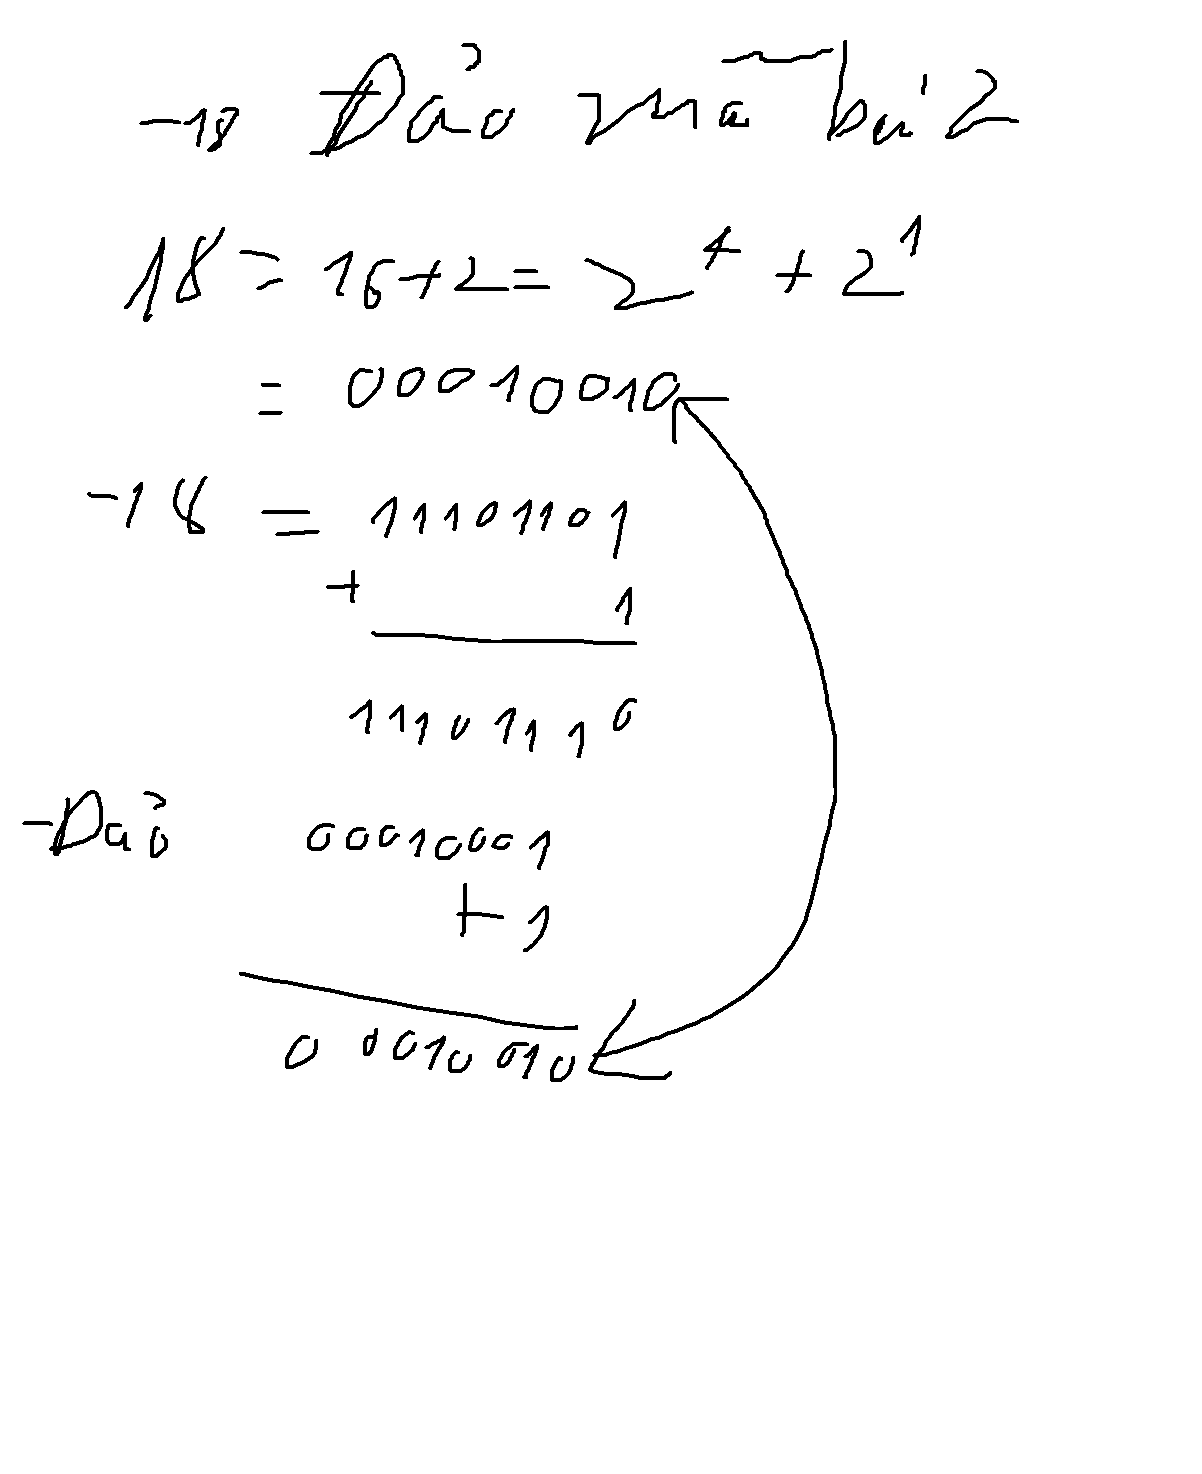 -18 Đảo mã bù 2
18 = 16+2 = 2^4 + 2^1
= 00010010
-18 = 11101101
+ 1
11101110
-Đaỏ 00010001
+ 1
00010010